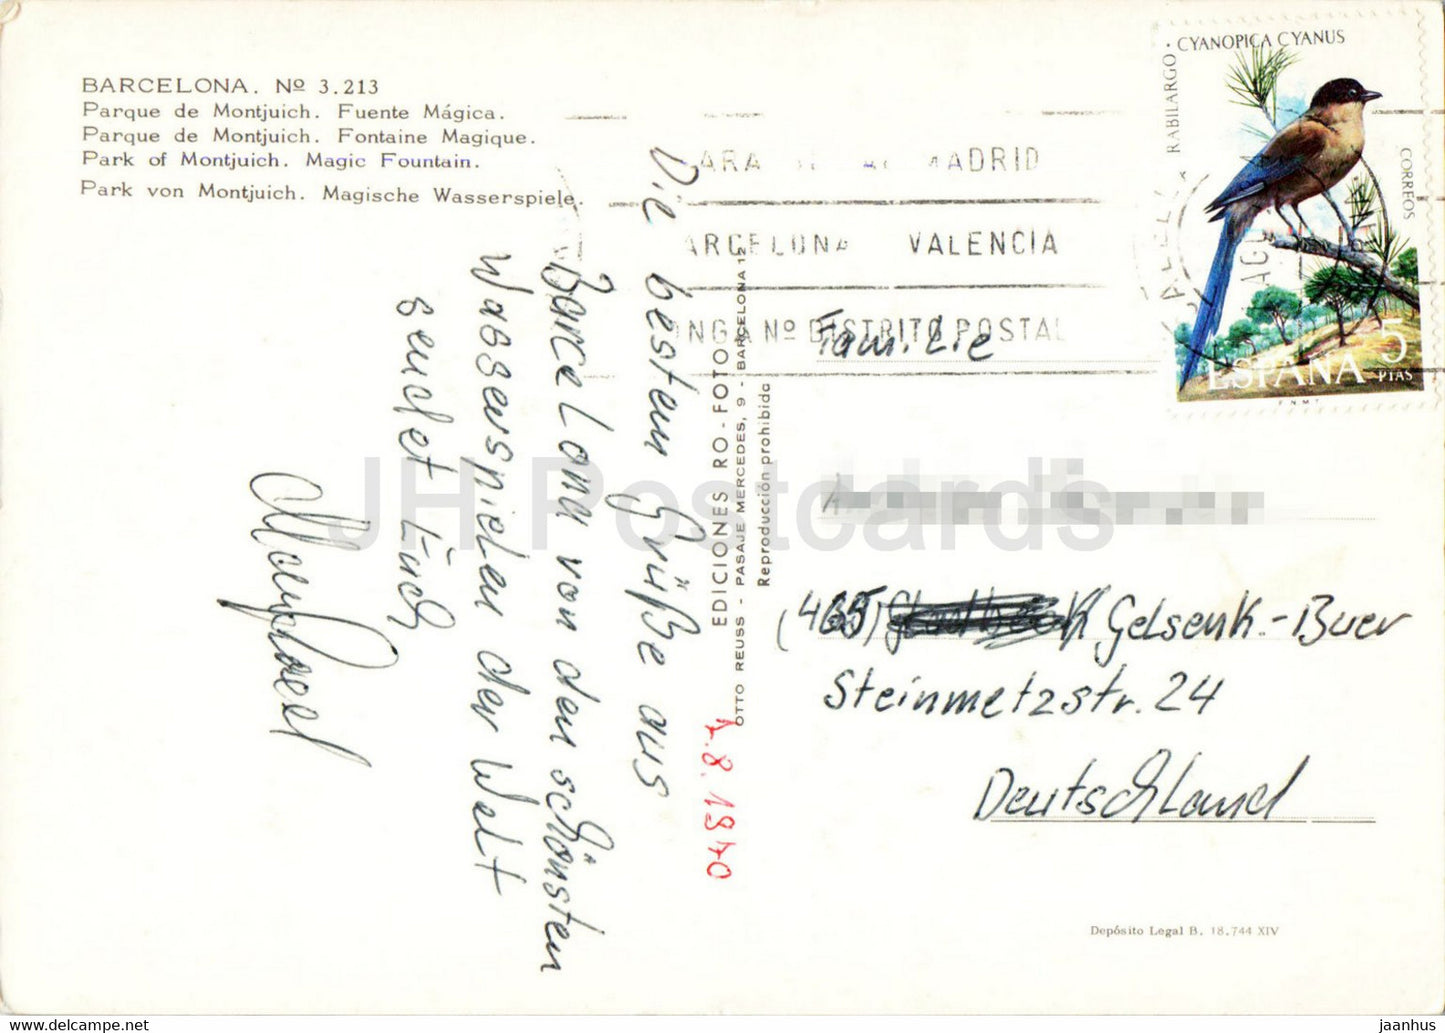 BARCELONA. Nº 3.213
Parque de Montjuich. Fuente Mágica.
Parque de Montjuich. Fontaine Magique.
Park of Montjuich. Magic Fountain.
Park von Montjuich. Magische Wasserspiele.
Die besten Grüße aus
Barcelona von den schönsten
Wasserspielen der Welt
sendet Euch
7.8.1970
EDICIONES RO-FOTO
OTTO REUSS - PASAJE MERCEDES, 9 - BARCELONA 12
Reproducción prohibida
ARA MADRID
ARCELONA VALENCIA
ONGA Nº DISTRITO POSTAL
CYANOPICA CYANUS
RABILARGO
CORREOS
AGO
ESPAÑA 5
PTAS
F.N.M.T.
Familie
(465) Gelsenk.-Buer
Steinmetzstr. 24
Deutschland
Depósito Legal B. 18.744 XIV
JH Postcards
jaanhus - www.delcampe.net